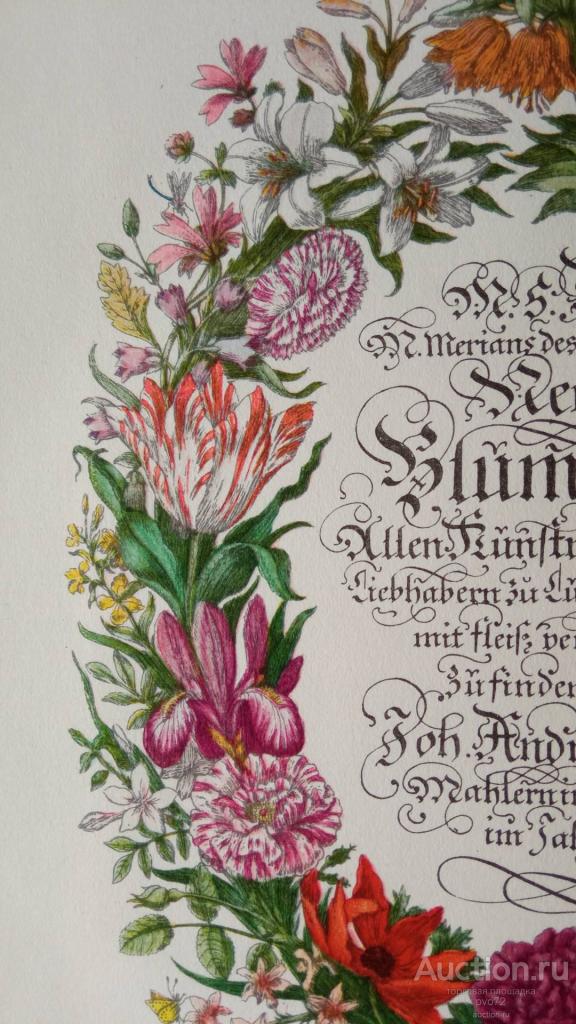 M. S.
M. Merians des
Ne
Blům
Allen Künst
Liebhabern zu Lu
mit fleiß ver
Zů finden
Joh. Andr
Mahlern in
im Jah
Auction.ru
торговая площадка
pvo72
auction-ru